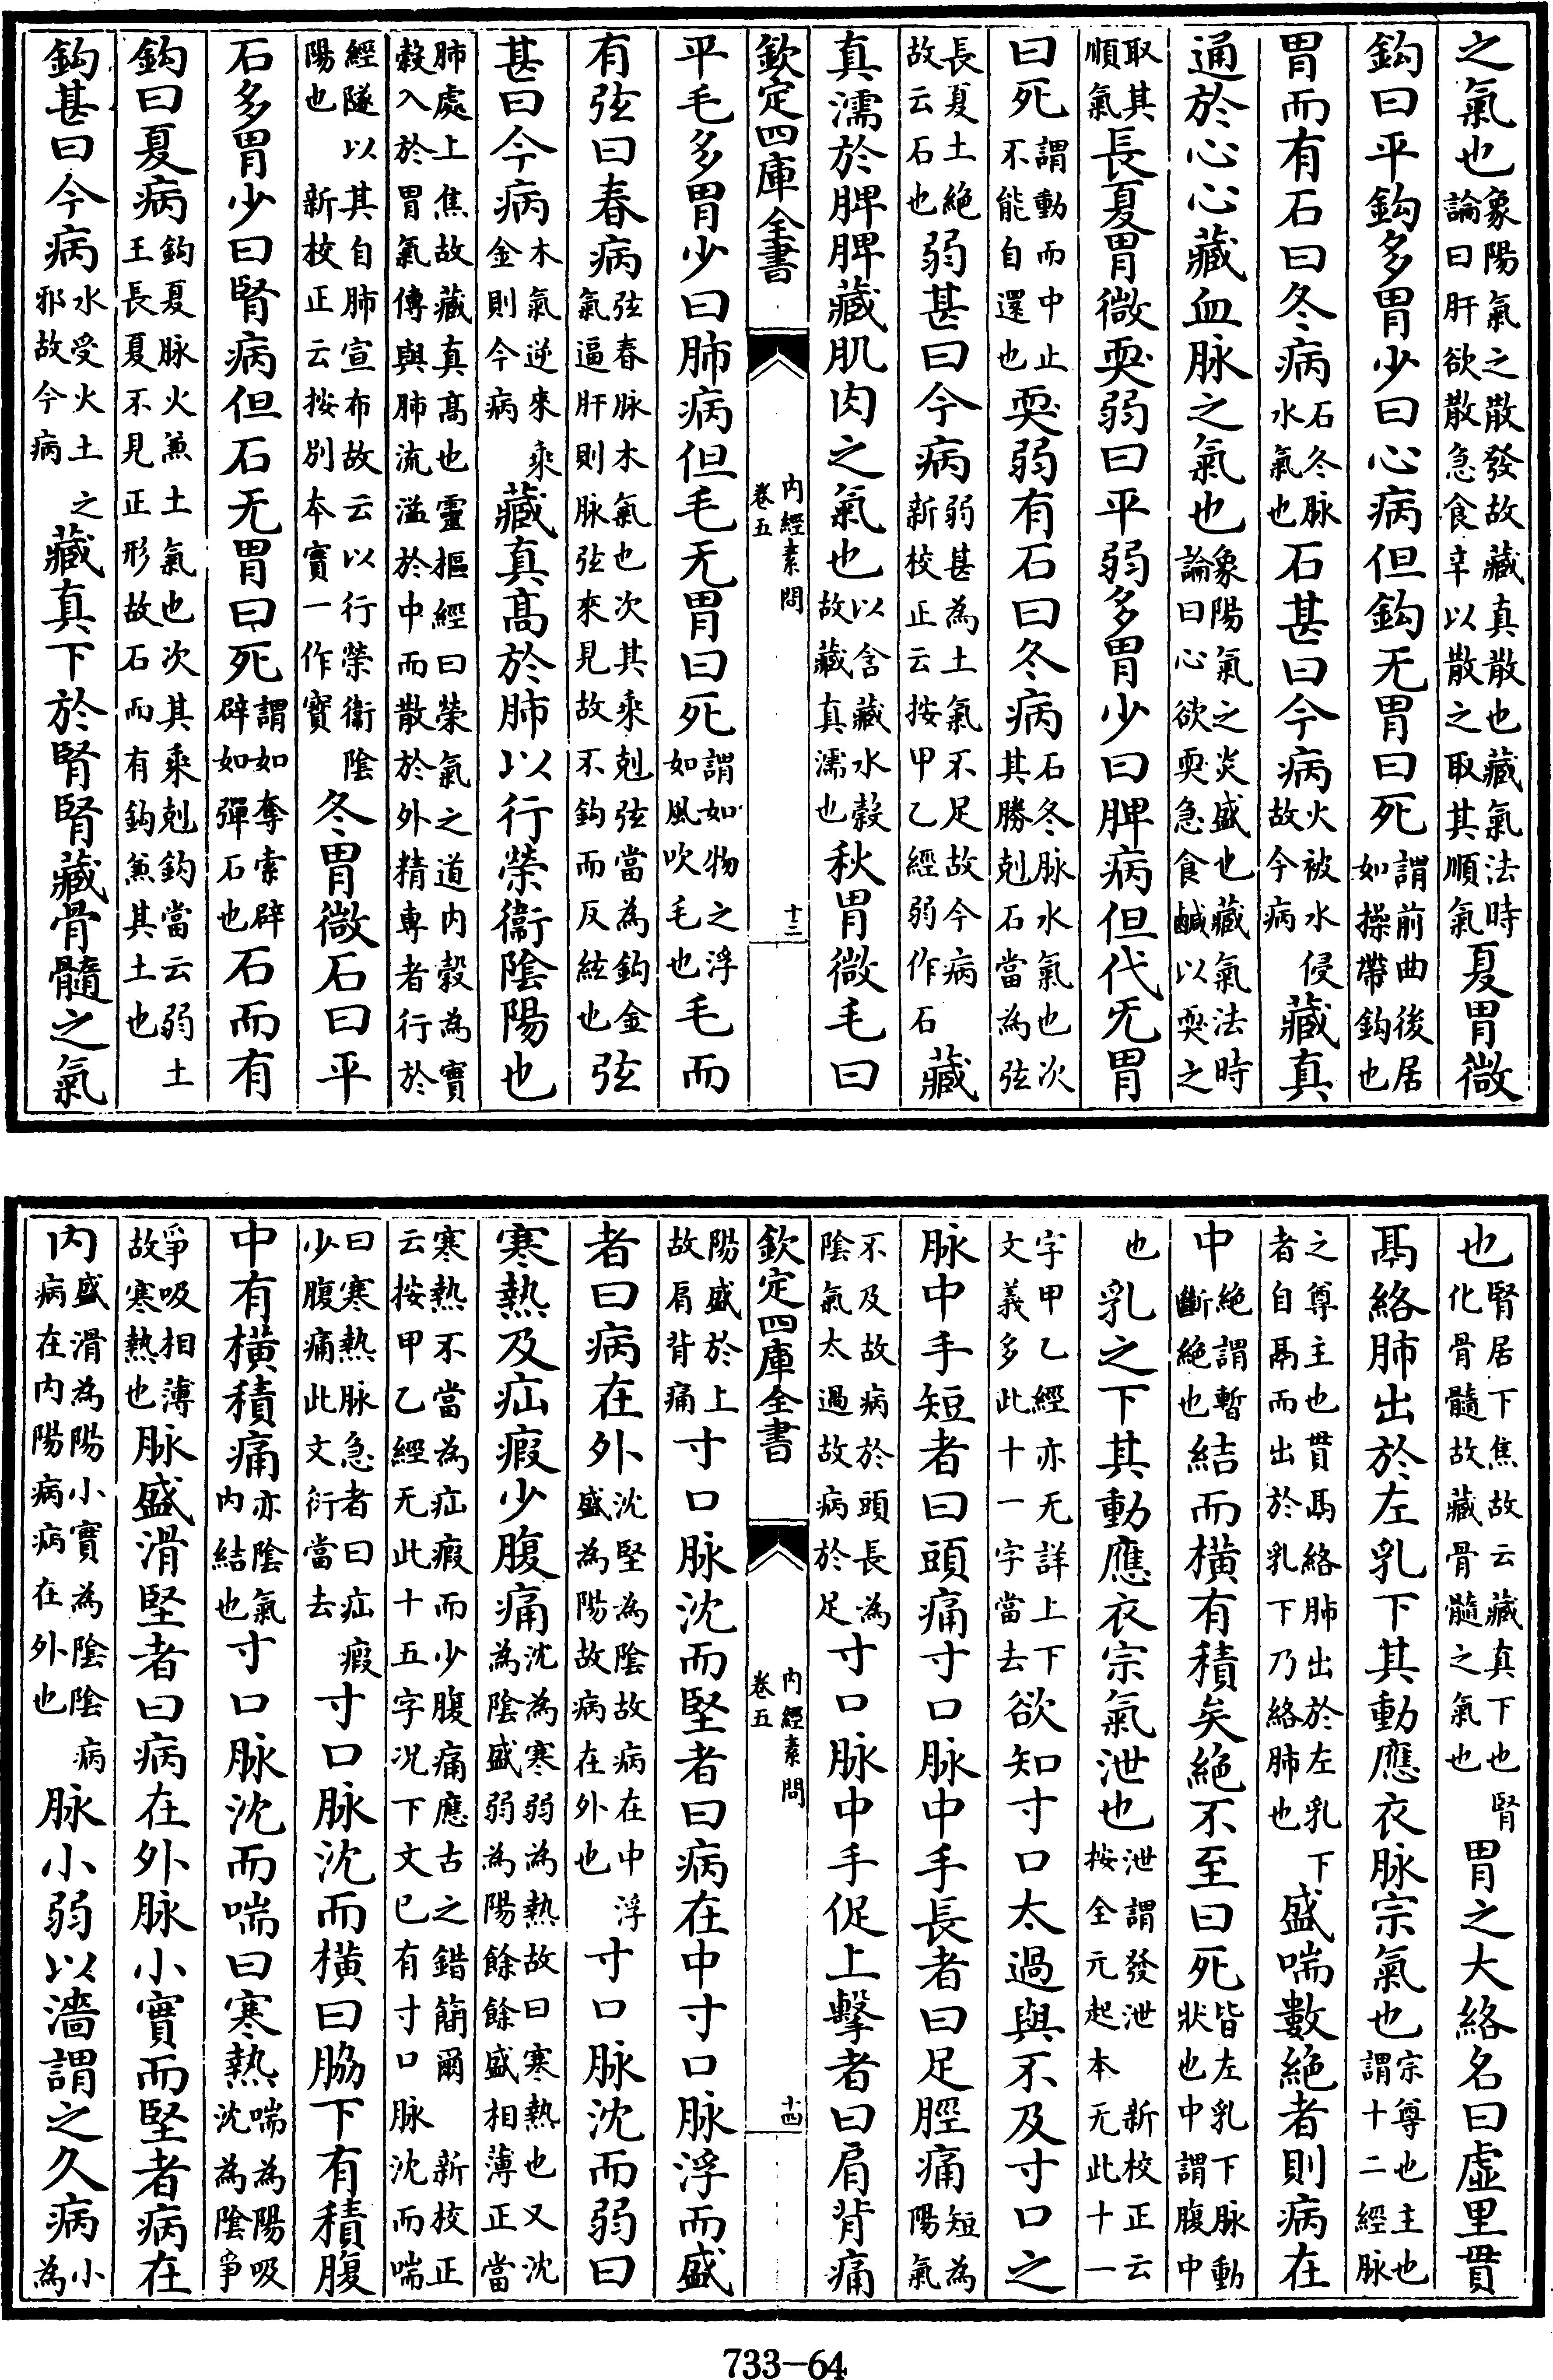 之氣也象陽氣之散發故藏真散也藏氣法時論曰肝欲散急食辛以散之取其順氣夏胃微
鈎曰平鈎多胃少曰心病但鈎无胃曰死謂前曲後居如操帶鈎也
胃而有石曰冬病石冬脉水氣也石甚曰今病火被水侵故今病藏真
通於心心藏血脉之氣也象陽氣之炎盛也藏氣法時論曰心欲耎急食鹹以耎之
取其順氣長夏胃微耎弱曰平弱多胃少曰脾病但代无胃
曰死謂動而中止不能自還也耎弱有石曰冬病石冬脉水氣也次其勝剋石當為弦
長夏土絶故云石也弱甚曰今病弱甚為土氣不足故今病新校正云按甲乙經弱作石藏
真濡於脾脾藏肌肉之氣也以含藏水穀故藏真濡也秋胃微毛曰
欽定四庫全書 內經素問卷五 十三
平毛多胃少曰肺病但毛无胃曰死謂如物之浮如風吹毛也毛而
有弦曰春病弦春脉木氣也次其乘剋弦當為鈎金氣逼肝則脉弦來見故不鈎而反絃也弦
甚曰今病木氣逆來乘金則今病藏真髙於肺以行榮衞陰陽也
肺處上焦故藏真髙也靈樞經曰榮氣之道内穀為實穀入於胃氣傳與肺流溢於中而散於外精專者行於
經隧以其自肺宣布故云以行榮衞陰陽也 新校正云按别本實一作寳冬胃微石曰平
石多胃少曰腎病但石无胃曰死謂如奪索辟辟如彈石也石而有
鈎曰夏病鈎夏脉火兼土氣也次其乘剋鈎當云弱土王長夏不見正形故石而有鈎兼其土也
鈎甚曰今病水受火土之邪故今病藏真下於腎腎藏骨髓之氣
也腎居下焦故云藏真下也腎化骨髓故藏骨髓之氣也胃之大絡名曰虚里貫
鬲絡肺出於左乳下其動應衣脉宗氣也宗尊也主也謂十二經脉
之尊主也貫鬲絡肺出於左乳下者自鬲而出於乳下乃絡肺也盛喘數絶者則病在
中絶謂暫斷絶也結而横有積矣絶不至曰死皆左乳下脉動狀也中謂腹中
也乳之下其動應衣宗氣泄也泄謂發泄 新校正云按全元起本无此十一
字甲乙經亦无詳上下文義多此十一字當去欲知寸口太過與不及寸口之
脉中手短者曰頭痛寸口脉中手長者曰足脛痛短為陽氣
不及故病於頭長為陰氣太過故病於足寸口脉中手促上擊者曰肩背痛
欽定四庫全書 內經素問卷五 十四
陽盛於上故肩背痛寸口脉沈而堅者曰病在中寸口脉浮而盛
者曰病在外沈堅為陰故病在中浮盛為陽故病在外也寸口脉沈而弱曰
寒熱及疝瘕少腹痛沈為寒弱為熱故曰寒熱也又沈為陰盛弱為陽餘餘盛相薄正當
寒熱不當為疝瘕而少腹痛應古之錯簡爾 新校正云按甲乙經无此十五字况下文已有寸口脉沈而喘
曰寒熱脉急者曰疝瘕少腹痛此文衍當去寸口脉沈而横曰脇下有積腹
中有横積痛亦陰氣内結也寸口脉沈而喘曰寒熱喘為陽吸沈為陰爭
爭吸相薄故寒熱也脉盛滑堅者曰病在外脉小實而堅者病在
内盛滑為陽小實為陰陰病病在内陽病病在外也脉小弱以濇謂之久病小為
733-64